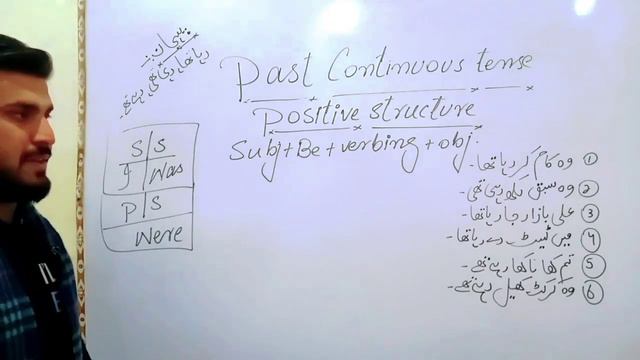 پہچان:-
رہا تھا، رہی تھی، رہے تھے۔
Past Continuous tense
Positive structure
Subj + Be + verbing + obj.
S/S
I / was
P/S
Were
① وہ کام کر رہا تھا۔
② وہ سبق لکھ رہی تھی۔
③ علی بازار جا رہا تھا۔
④ میں ٹیسٹ دے رہا تھا۔
⑤ تم کھانا کھا رہے تھے۔
⑥ وہ کرکٹ کھیل رہے تھے۔